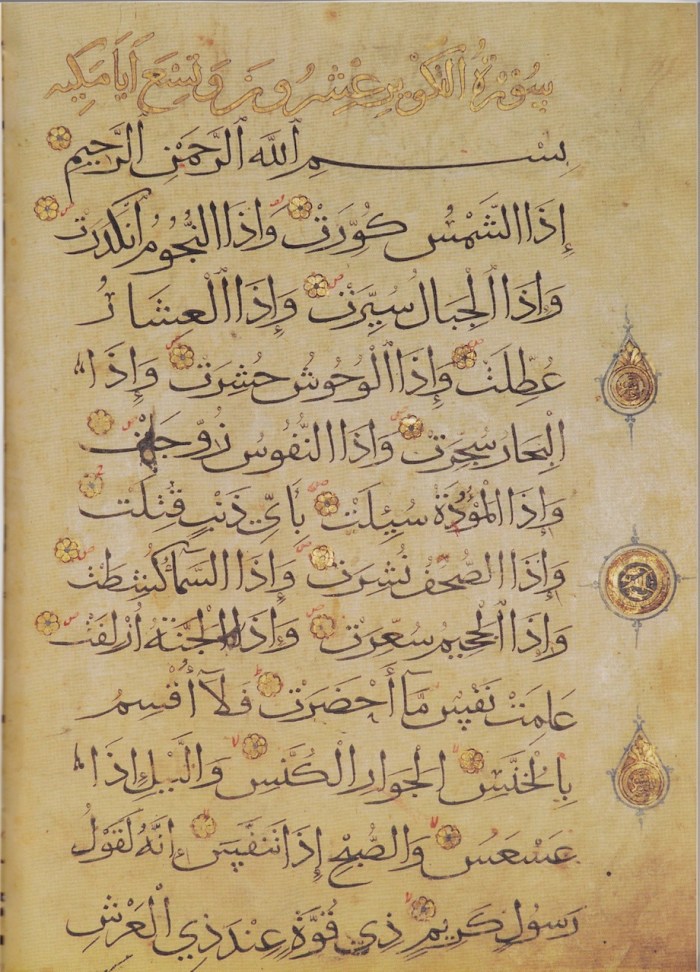 سورة التكوير عشرون وتسع آيا مكية
بِسْمِ ٱللَّهِ ٱلرَّحْمَٰنِ ٱلرَّحِيمِ
إِذَا الشَّمْسُ كُوِّرَتْ وَإِذَا النُّجُومُ انْكَدَرَتْ
وَإِذَا الْجِبَالُ سُيِّرَتْ وَإِذَا الْعِشَارُ
عُطِّلَتْ وَإِذَا الْوُحُوشُ حُشِرَتْ وَإِذَا
الْبِحَارُ سُجِّرَتْ وَإِذَا النُّفُوسُ زُوِّجَتْ
وَإِذَا الْمَوْؤُدَةُ سُئِلَتْ بِأَيِّ ذَنْبٍ قُتِلَتْ
وَإِذَا الصُّحُفُ نُشِرَتْ وَإِذَا السَّمَآءُ كُشِطَتْ
وَإِذَا الْجَحِيمُ سُعِّرَتْ وَإِذَا الْجَنَّةُ أُزْلِفَتْ
عَلِمَتْ نَفْسٌ مَّآ أَحْضَرَتْ فَلَآ أُقْسِمُ
بِالْخُنَّسِ الْجَوَارِ الْكُنَّسِ وَالَّيْلِ إِذَا
عَسْعَسَ وَالصُّبْحِ إِذَا تَنَفَّسَ إِنَّهُ لَقَوْلُ
رَسُولٍ كَرِيمٍ ذِي قُوَّةٍ عِنْدَ ذِي الْعَرْشِ